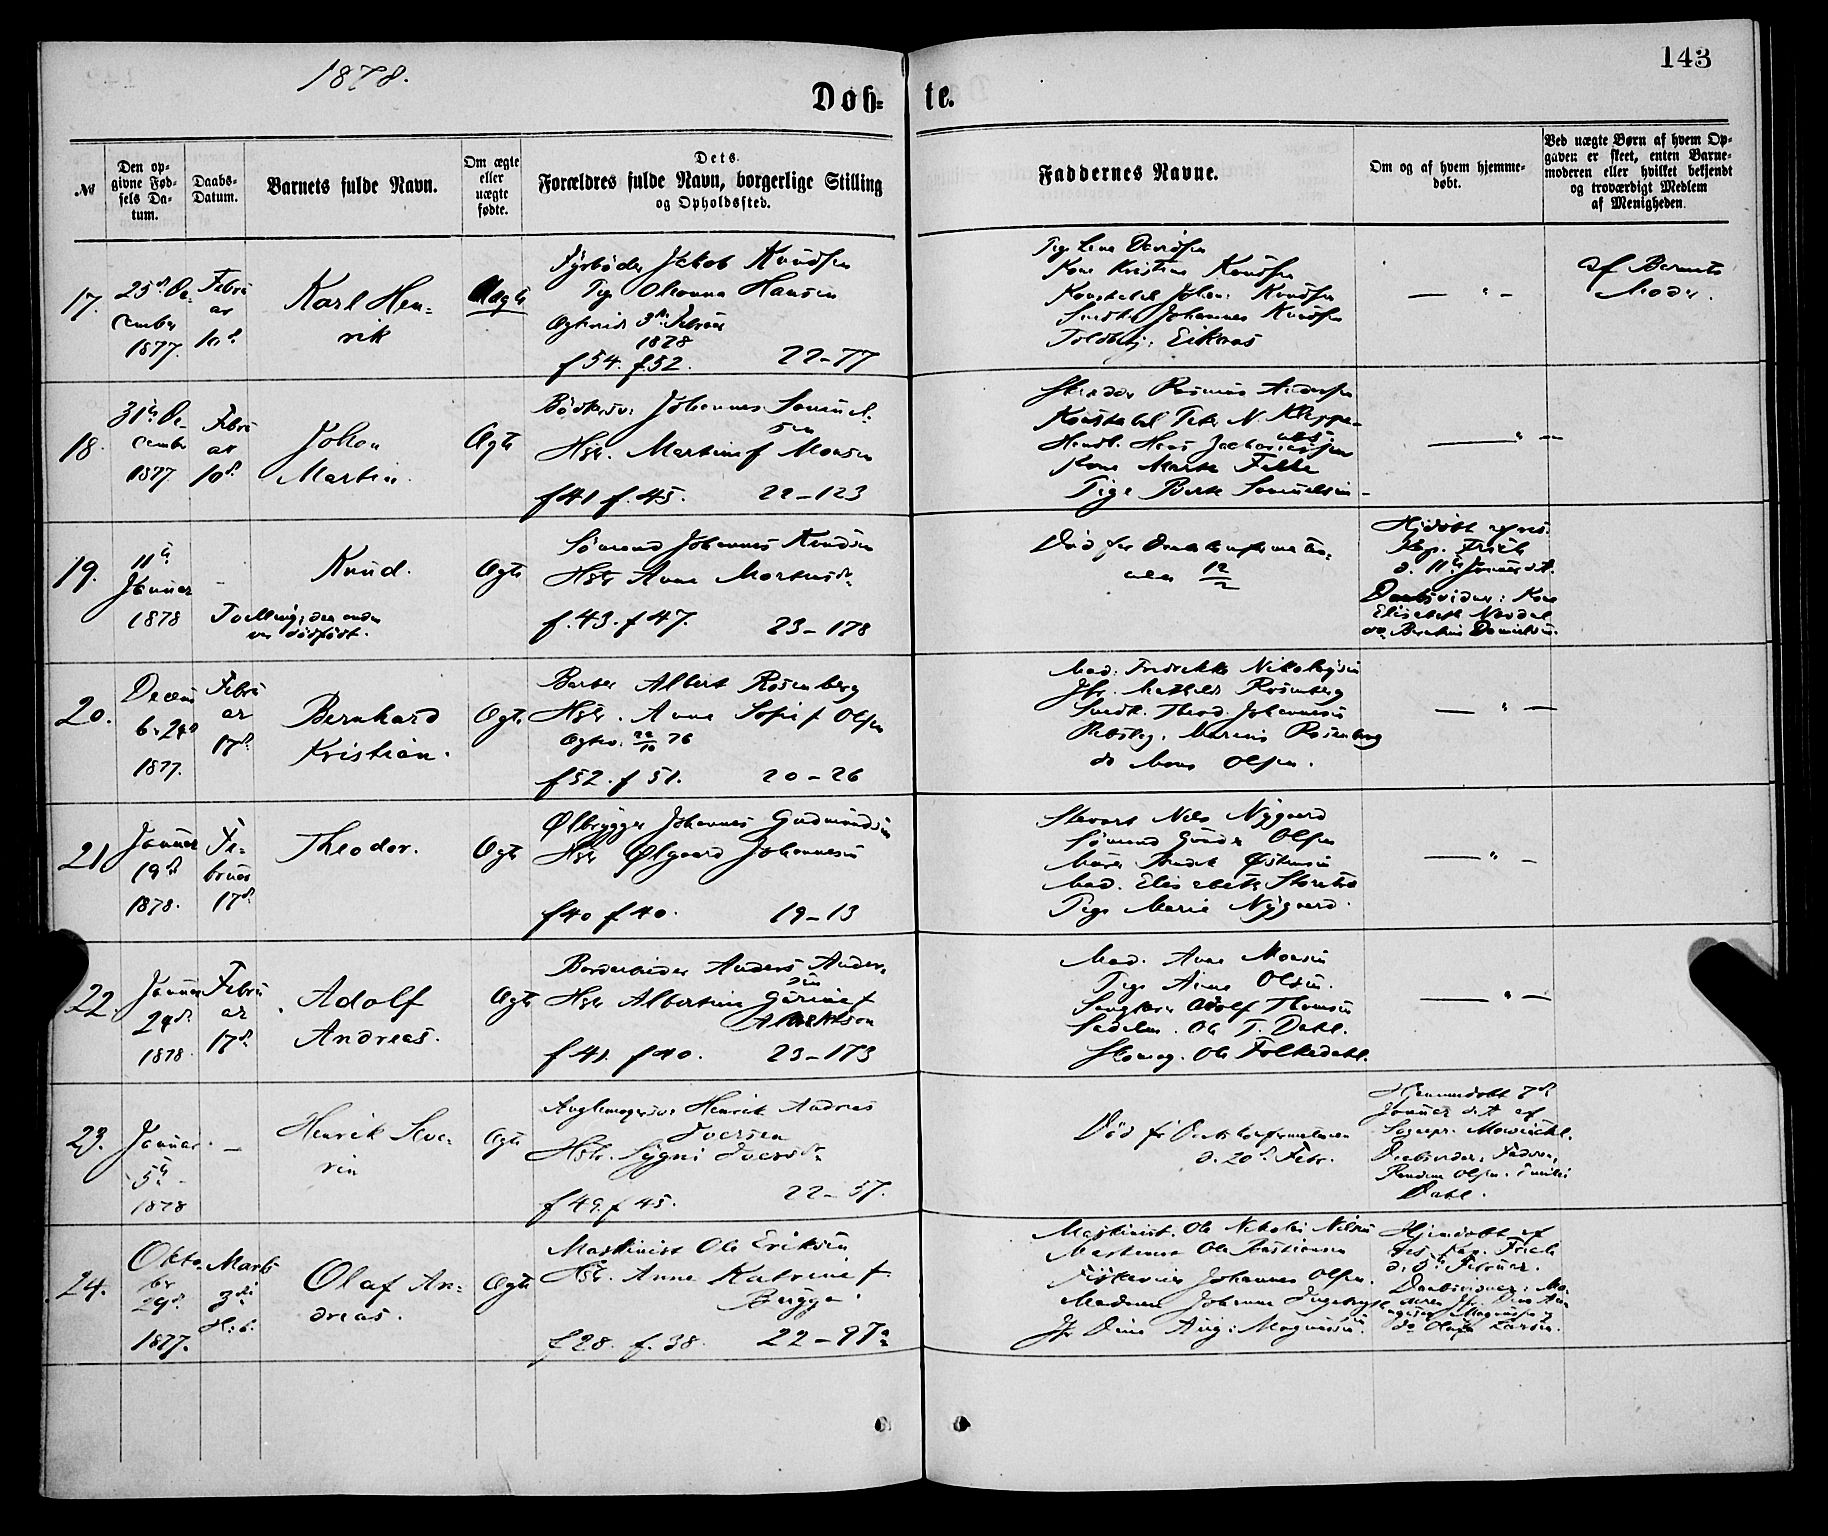 1878.
143
Døb-
te.
№
Den op-
givne Fød-
sels Da-
tum.
Daabs-
Datum.
Barnets fulde Navn.
Om ægte
eller
uægte
fødte.
Dets
Forældres fulde Navn, borgerlige Stilling
og Opholdssted.
Faddernes Navne.
Om og af hvem hjemme-
døbt.
Ved uægte Børn af hvem Op-
gaven er skeet, enten Barne-
moderen eller hvilket bekjendt
og troværdigt Medlem
af Menigheden.
17.
25d De-
cember
1877.
Febru
ar
10d
Karl Hen-
rik
Uægte
Fyrbøder Jakob Knudsen
Pige Hansen
3die Februar
1878
f 54. f 52. 22-77
Pige Lena Davidsen
Kone Kristine Knudsen
Konstabel Johan Knudsen
Johannes Knudsen
Eiknes
— " —
af Barnets
Moder.
18.
31te De-
cember
1877.
Febru
ar
10d
Johan
Martin.
Ægte
Bødkersv. Johannes Samuel-
sen
Hstr. Martine f Monsen
f 41 f. 45. 22-123
Skræder Rasmus Andersen
Konstabel Peter N. Kleppe-
Handl. Hans Zachariassen
Kone Marte Felle
Pige Berte Samuelsen
— " —
19.
11te
Januar
1878
-
Tvilling; den anden
var dødfødt.
Knud.
Ægte
Sømand Johannes Knudsen
Hstr Anna Martinsdr
f. 43. f 47. 23-178
Død før Daabskonfirmatio-
nen 12/2
Hjdøbt af res.
Kap. Frich
d. 11te Januar d. A.
Daabsvidner: Kone
Elisabeth Nesdal
do Berntine Danielsen.
20.
Decem
b. 24d
1877.
Febru
ar
17d
Bernhard
Kristian.
Ægte
Barber Albert Rosenberg
Hstr. Anna Sofie f Olsen
Ægtev. 22/10 76
f 52. f 51. 20-26
Mad. Fredrikke Nikolaysen
Jfr. Mathilde Rosenberg
Snedk. Theod. Johannesen
Marius Rosenberg
do Mons Olsen.
— " —
21
Januar
19d
1878.
Fe-
bruar
17d
Theodor.
Ægte
Ølbrygger Johannes Gudmundsen
Hstr Ølgaard Johannesen
f 40 f 40. 19-13
Stevart Nils Nygaard
Sømand Gunder Olsen
Murer Østensen
Mad. Elisabeth
Pige Marie Nygaard.
— " —
22.
Januar
24d
1878.
Febru
ar
17d
Adolf
Andreas.
Ægte
Bordarbeider Anders Ander-
sen
Hstr Albertine Gurine f
Albertson
f 41. f 40. 23-173
Mad. Anne Monsen
Pige Anne Olsen.
Adolf Thomsen
Sadelm. Ole T. Dahl.
Skomag. Ole Folkedahl.
— " —
23.
Januar
5te
1878
—
Henrik Seve-
rin
Ægte
Henrik Andreas
Iversen
Hstr. Sygni Iversdr
f 49. f 45. 22-57.
Død før Daabskonfirmationen
d. 20d Febr.
Hjemmedøbt 7d
Januar d. A af
Sogepr. Mowinckl.
Daabsvidner: Faderen,
Olsen.
Dahl.
24.
Okto-
ber
29d
1877.
Marts
3die
Olaf An-
dreas.
Ægte
Maskinist Ole Eriksen
Hstr. Anne Katrine f.
Bugge.
f 28. f. 38. 22-97a
Maskinist. Ole Nikolai Nilsen
Ole Kristiansen
Johannes Olsen.
Madame Johanne
Jfr Dina Aug: Magnussen.
Hjemdøbt af
res. Kap. Frich
d. 3die Februar.
Daabsvidner: Ma-
Jfr. Dina Au-
Magnussen
do Oluf Larsen.